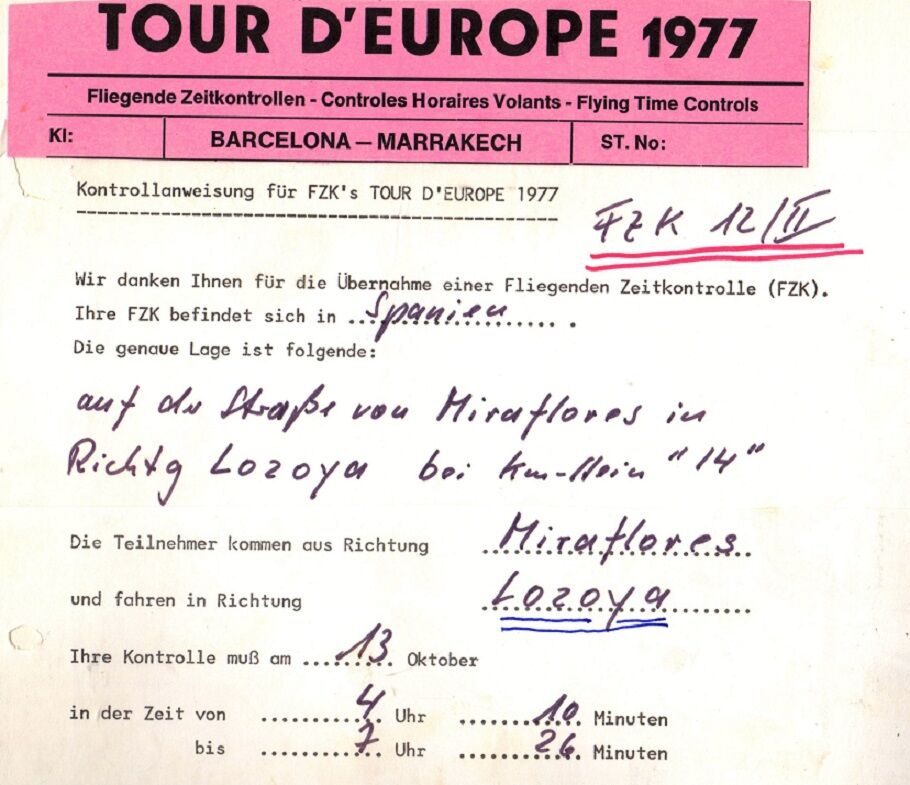 TOUR D'EUROPE 1977
Fliegende Zeitkontrollen - Controles Horaires Volants - Flying Time Controls
Kl: BARCELONA — MARRAKECH ST. No:
Kontrollanweisung für FZK's TOUR D'EUROPE 1977
FZK 12/II
Wir danken Ihnen für die Übernahme einer Fliegenden Zeitkontrolle (FZK).
Ihre FZK befindet sich in ...Spanien... .
Die genaue Lage ist folgende:
auf der Straße von Miraflores in
Richtg Lozoya bei Km-Stein "14"
Die Teilnehmer kommen aus Richtung Miraflores
und fahren in Richtung Lozoya
Ihre Kontrolle muß am ...13... Oktober
in der Zeit von 4 Uhr 10 Minuten
bis 7 Uhr 26 Minuten